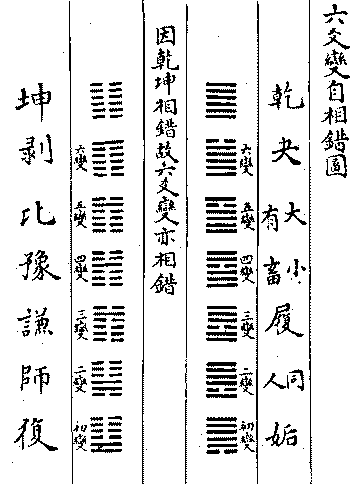 六爻變自相錯圖
乾
夬
大有
小畜
履
同人
姤
六變
五變
四變
三變
二變
初變
因乾坤相錯故六爻變亦相錯
六變
五變
四變
三變
二變
初變
坤
剝
比
豫
謙
師
復